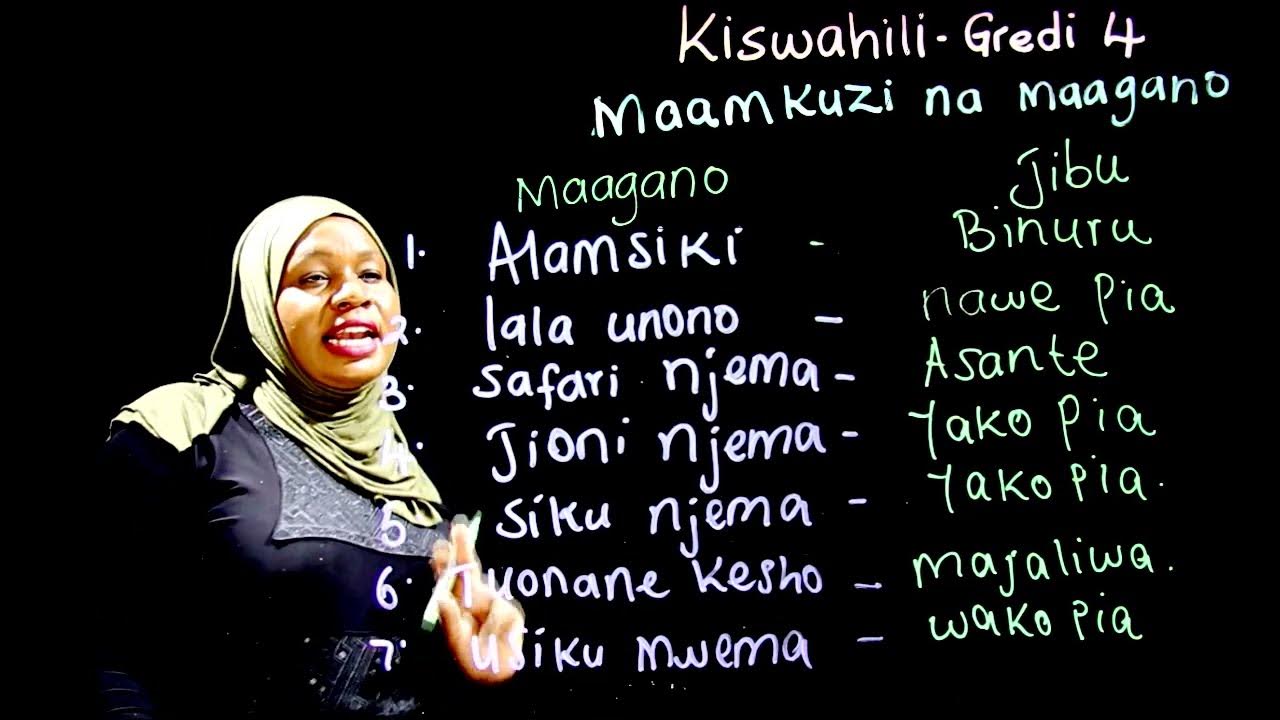 Kiswahili - Gredi 4
Maamkuzi na maagano
Maagano Jibu
1. Alamsiki - Binuru
2. lala unono - nawe pia
3. safari njema - Asante
4. Jioni njema - Yako pia
5. siku njema - Yako pia.
6. Tuonane kesho - majaliwa.
7. usiku mwema - wako pia